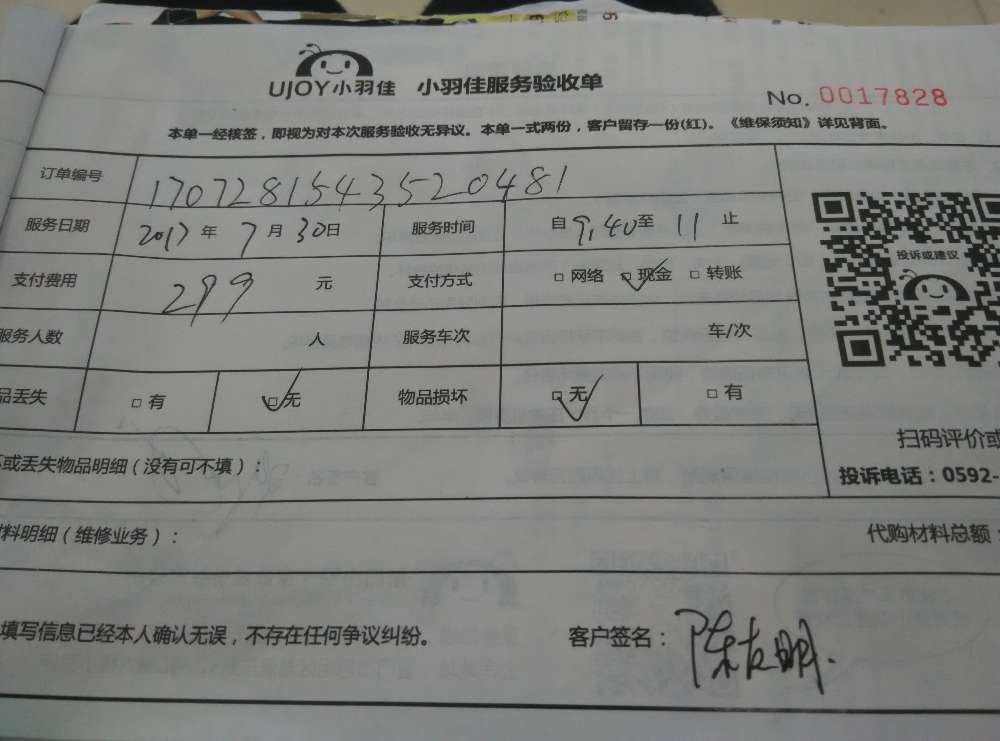 UJOY小羽佳 小羽佳服务验收单
No. 0017828
本单一经核签，即视为对本次服务验收无异议。本单一式两份，客户留存一份(红)。《维保须知》详见背面。
订单编号 17072815435520481
服务日期 2017 年 7 月 30 日 服务时间 自 9,40 至 11 止
投诉或建议
支付费用 299 元 支付方式 □ 网络 □ 现金 □ 转账
服务人数 人 服务车次 车/次
品丢失 □ 有 □ 无 物品损坏 □ 无 □ 有
扫码评价或
或丢失物品明细（没有可不填）：
投诉电话：0592-
料明细（维修业务）： 代购材料总额：
填写信息已经本人确认无误，不存在任何争议纠纷。 客户签名：陈友明